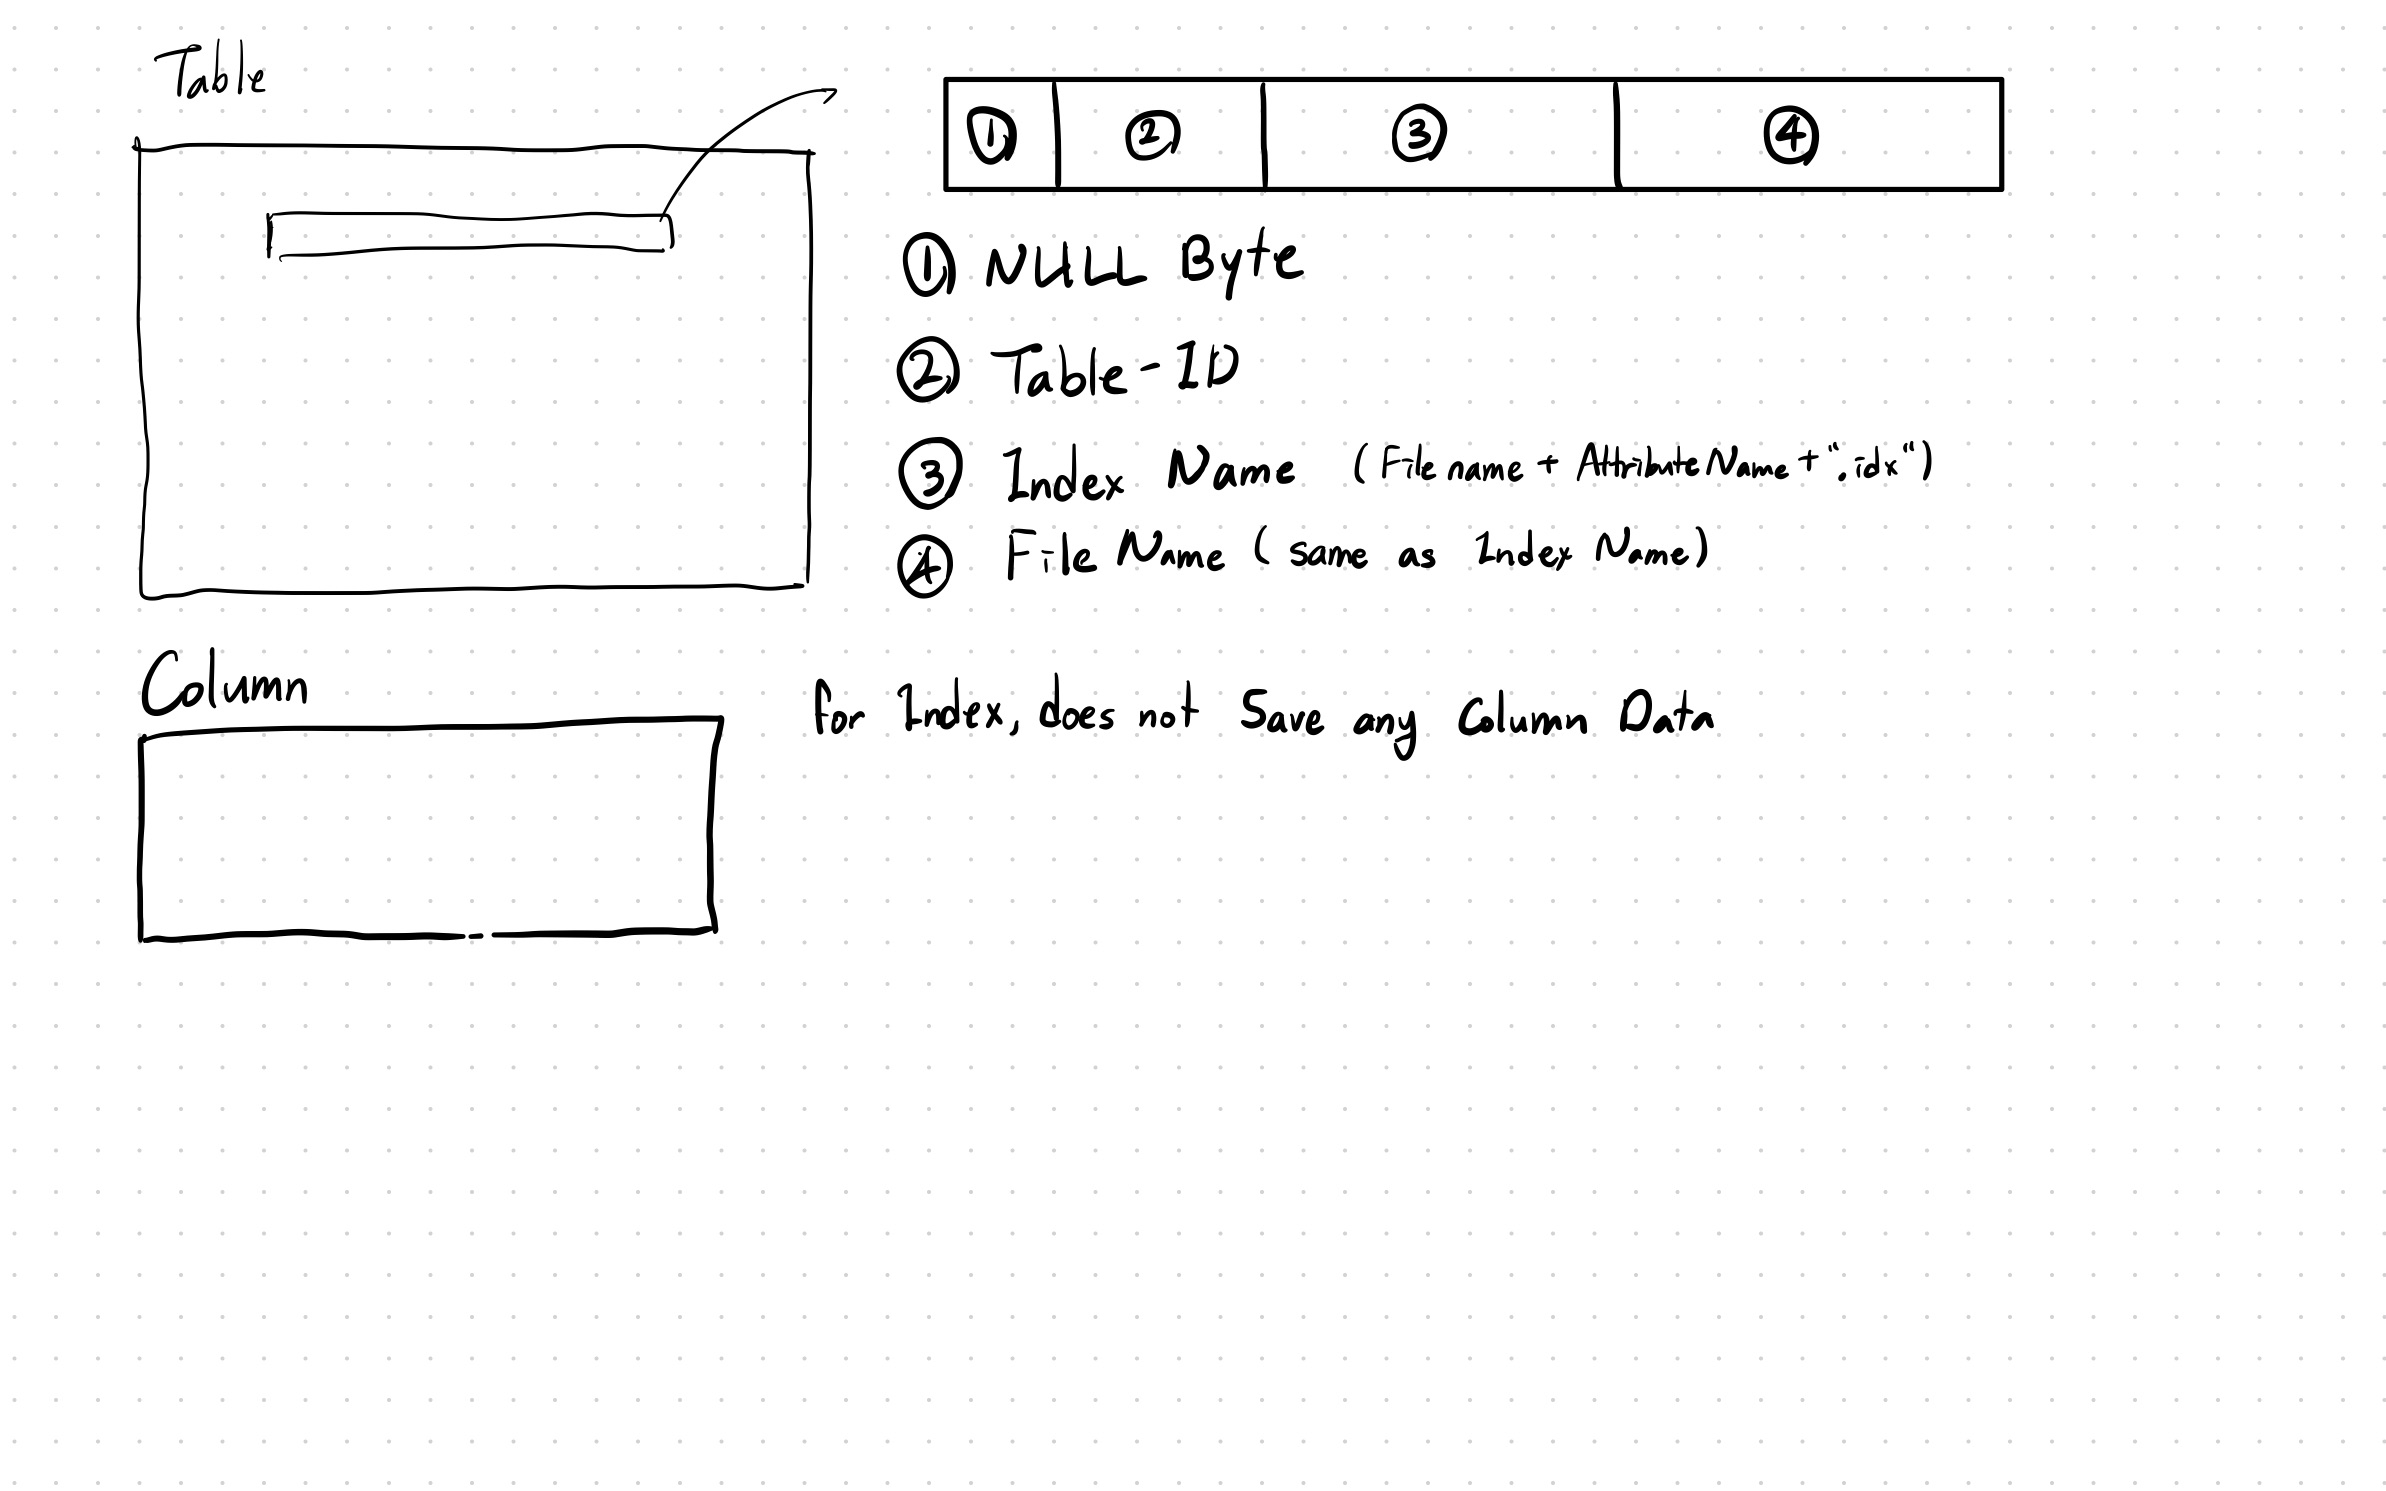 Table
① ② ③ ④
① NULL Byte
② Table-ID
③ Index Name (Filename + AttributeName + ".idx")
④ File Name (same as Index Name)
Column
for Index, does not Save any Column Data